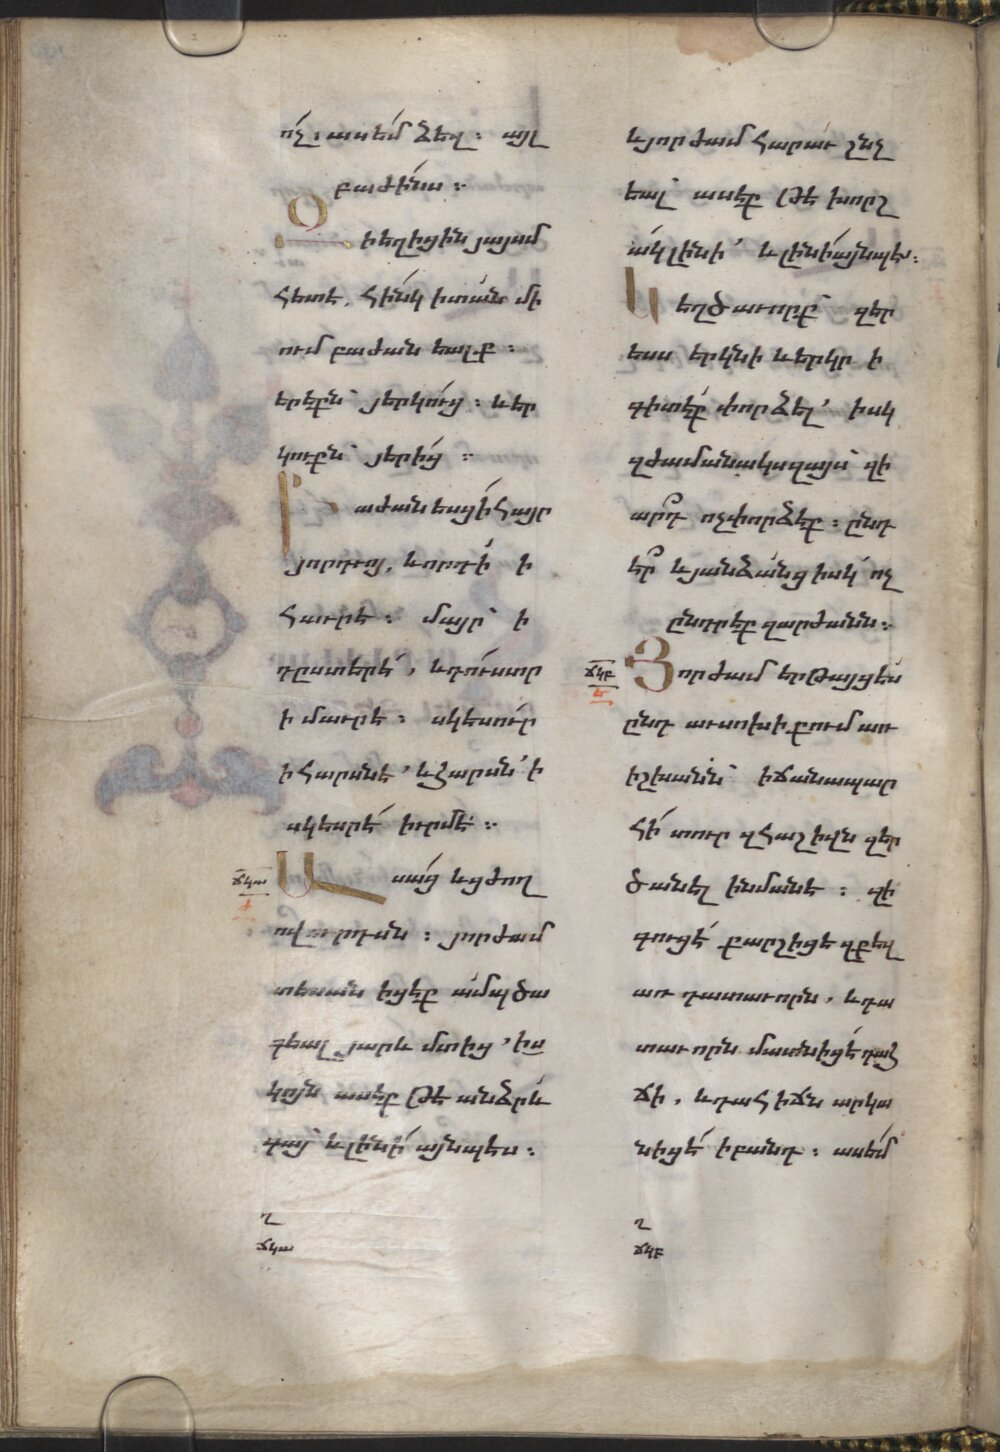 ոչ՛. ասեմ ձեզ։ այլ
բաժինս։
Զի եղիցին յայսմ
հետէ. հինկ ի տան մի
ում բաժանեալք։
երեքն՝ յերկուց։ և եր
կուքն՝ յերից։
Բաժանեսցի հայր
յորդւոյ, և որդի ի
հաւրէ։ մայր՝ ի
դըստերէ, և դուստր
ի մաւրէ։ սկեսուր
ի հարսնէ, և հարսն՝ ի
սկեսրէ իւրմէ։
ճկա
Ասաց և ցժող
ովուրդսն։ յորժամ
տեսանիցէք ամպ ծա
գեալ յարևմտից, իս
կոյն ասէք թէ անձրև
գայ՝ և լինի այնպէս։
ճկա
և յորժամ հարաւ շնչ
եալ՝ ասէք թէ խորշ
ակ լինի՝ և լինի այնպէս։
Կեղծաւորք՝ զեր
եսս երկնի և երկր ի
գիտէք փորձել՝ իսկ
զժամանակս զայս՝ զի
արդ ոչ փորձէք։ ընդ
էր և յանձանց իսկ՝ ոչ
ընտրէք զարժանն։
ճկբ
ե
Յորժամ երթայցես
ընդ աւսոխի քում առ
իշխանն՝ ի ճանապար
հի տուր զհաշիւն զեր
ծանել ինմանէ։ զի
գուցէ քարշիցէ զքեզ
առ դատաւորն, և դա
տաւորն մատնիցէ դահ
ճի, և դահիճն արկա
նիցէ ի բանդ։ ասեմ
ճկբ